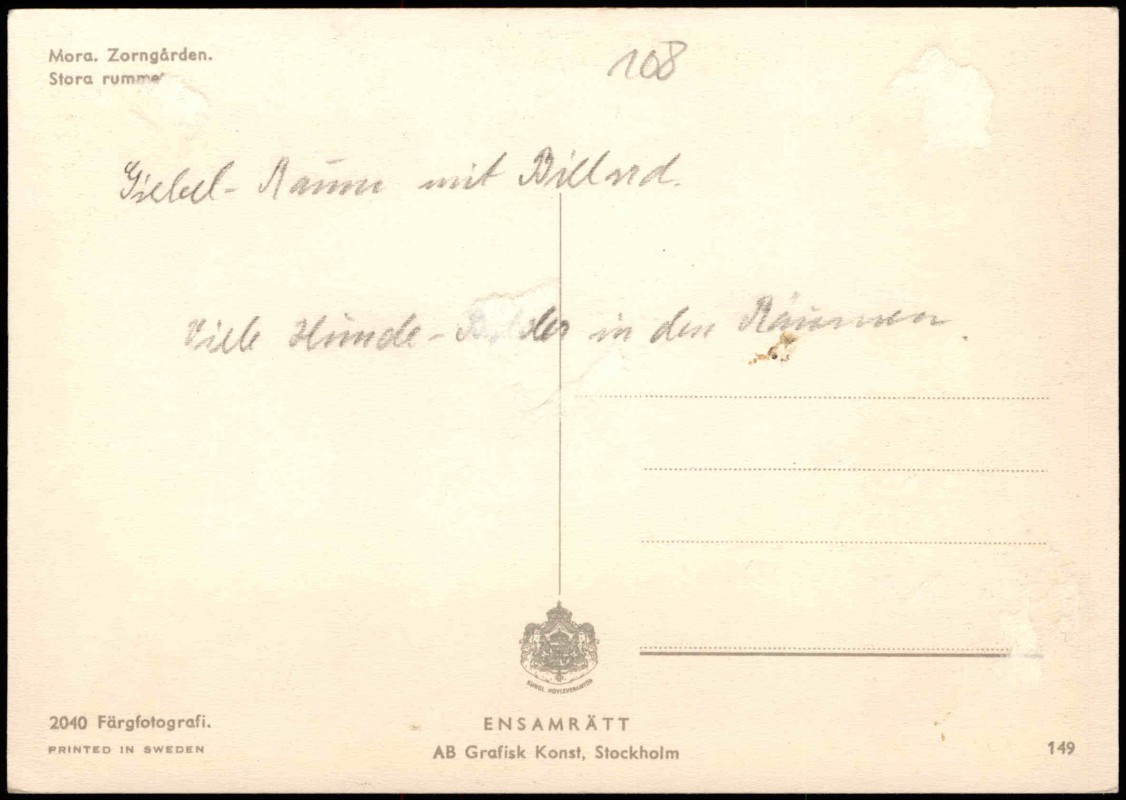 Mora. Zorngården.
Stora rummet
108
Giebel-Raum mit Billard.
Viele Hunde-Bilder in den Räumen.
KUNGL. HOVLEVERANTÖR
2040 Färgfotografi.
PRINTED IN SWEDEN
ENSAMRÄTT
AB Grafisk Konst, Stockholm
149